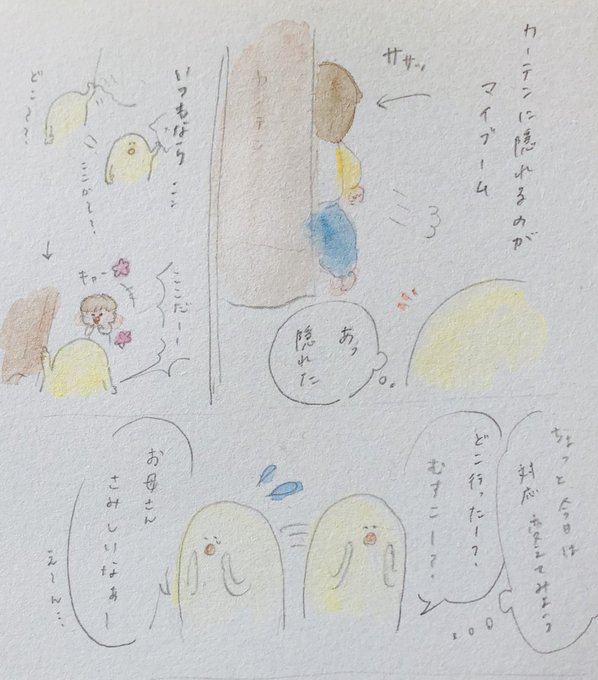 カーテンに隠れるのが
マイブーム
ササッ
カーテン
あっ
隠れた
いつもなら
ここかな〜?
どこ〜?
ここだーー
キャー
ちょっと今日は
対応変えてみよう
どこ行ったー?
むすこー?
お母さん
さみしいなぁー
え〜ん…